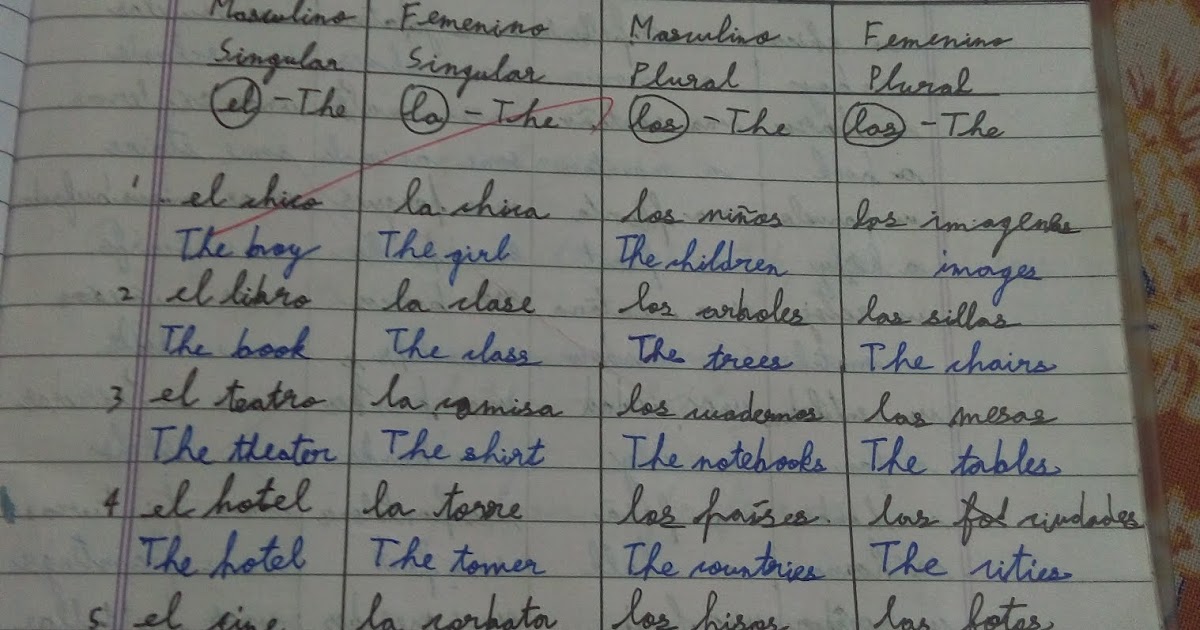 Masculino Femenino Masculino Femenino
Singular Singular Plural Plural
el - The la - The los - The las - The
1 el chico la chica los niños las imagenes
The boy The girl The children images
2 el libro la clase los arboles las sillas
The book The class The trees The chairs
3 el teatro la camisa los cuadernos las mesas
The theator The shirt The notebooks The tables
4 el hotel la torre los países. las ciudades
The hotel The tower The countries The cities
5 el cine la corbata los las fotos